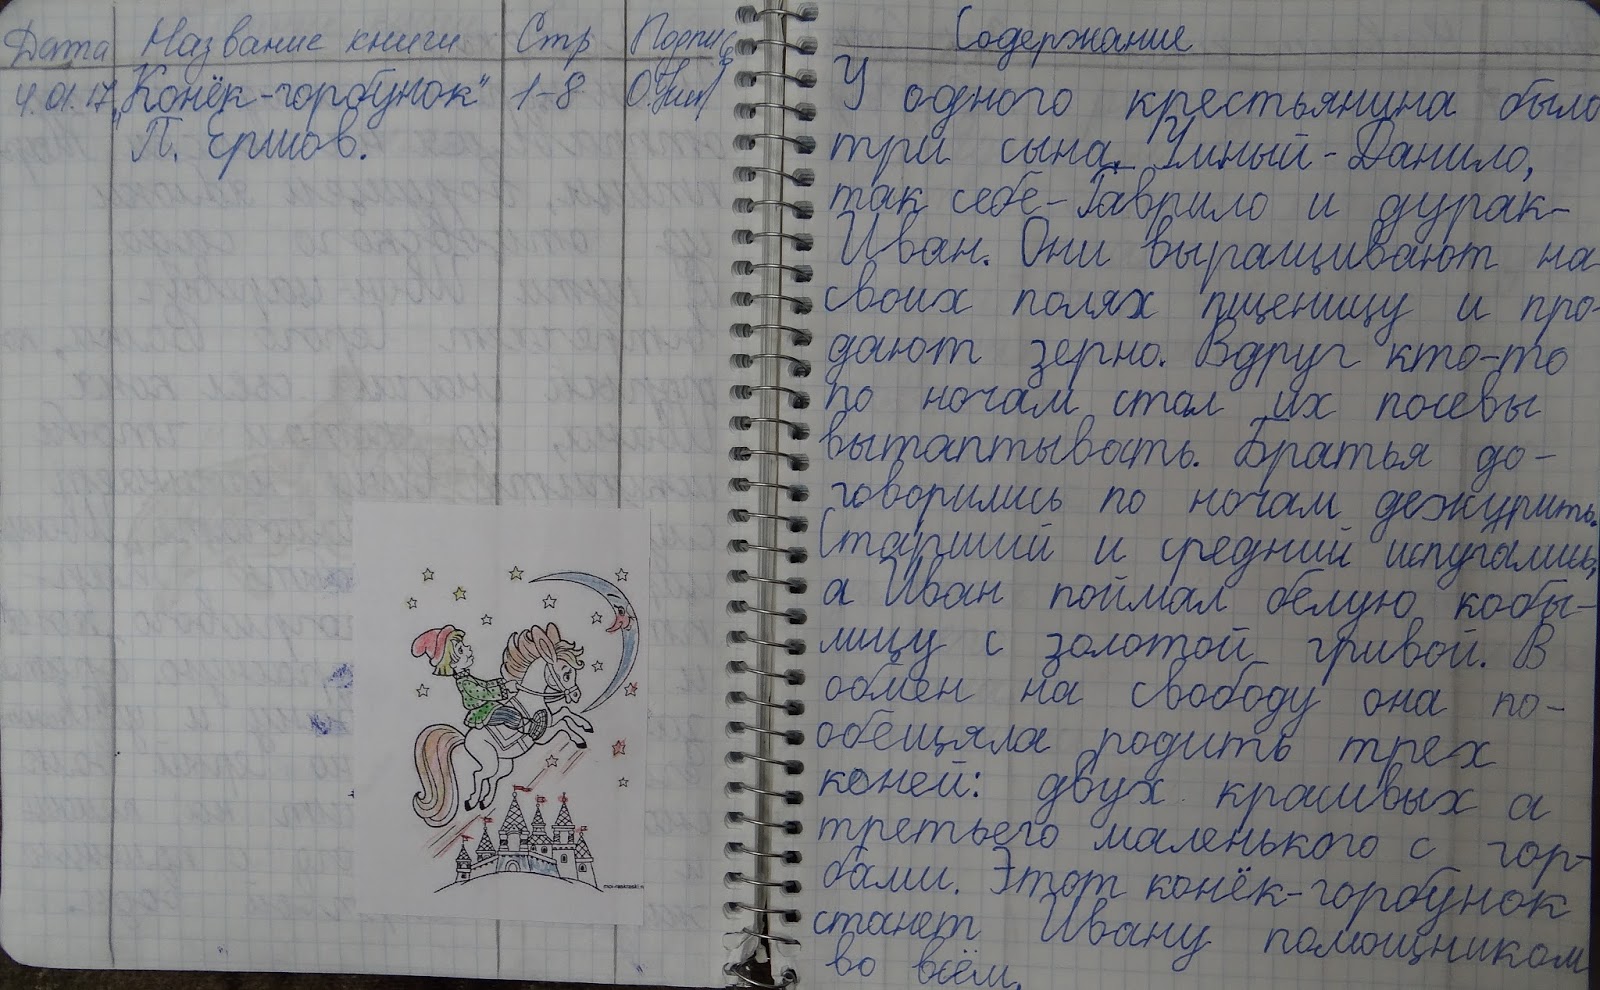 Дата Название книги Стр Подпись
4.01.17 „Конёк-горбунок" 1-8
П. Ершов.
Содержание
У одного крестьянина было
три сына. Умный - Данило,
так себе - Гаврило и дурак-
Иван. Они выращивают на
своих полях пшеницу и про-
дают зерно. Вдруг кто-то
по ночам стал их посевы
вытаптывать. Братья до-
говорились по ночам дежурить.
Старший и средний испугались,
а Иван поймал белую кобы-
лицу с золотой гривой. В
обмен на свободу она по-
обещяла родить трех
коней: двух красивых а
третьего маленького с гор-
бами. Этот конёк-горбунок
станет Ивану помощником
во всём.